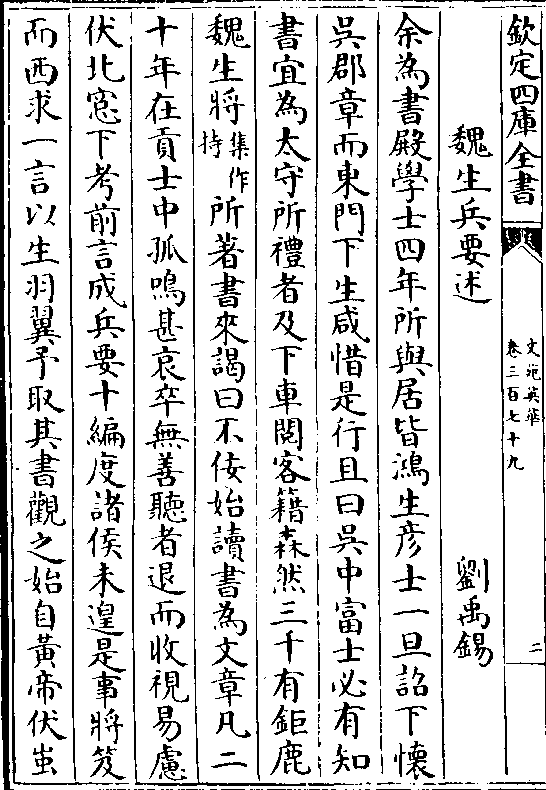 欽定四庫全書
文苑英華
卷三百七十九
二
魏生兵要述
劉禹錫
余為書殿學士四年所與居皆鴻生彦士一旦詔下懷
吳郡章而東門下生咸惜是行且曰吳中富士必有知
書宜為太守所禮者及下車閱客籍森然三千有鉅鹿
魏生將集作持所著書來謁曰不佞始讀書為文章凡二
十年在貢士中孤鳴甚哀卒無善聽者退而收視易慮
伏北窓下考前言成兵要十編度諸侯未遑是事將笈
而西求一言以生羽翼予取其書觀之始自黃帝伏蚩